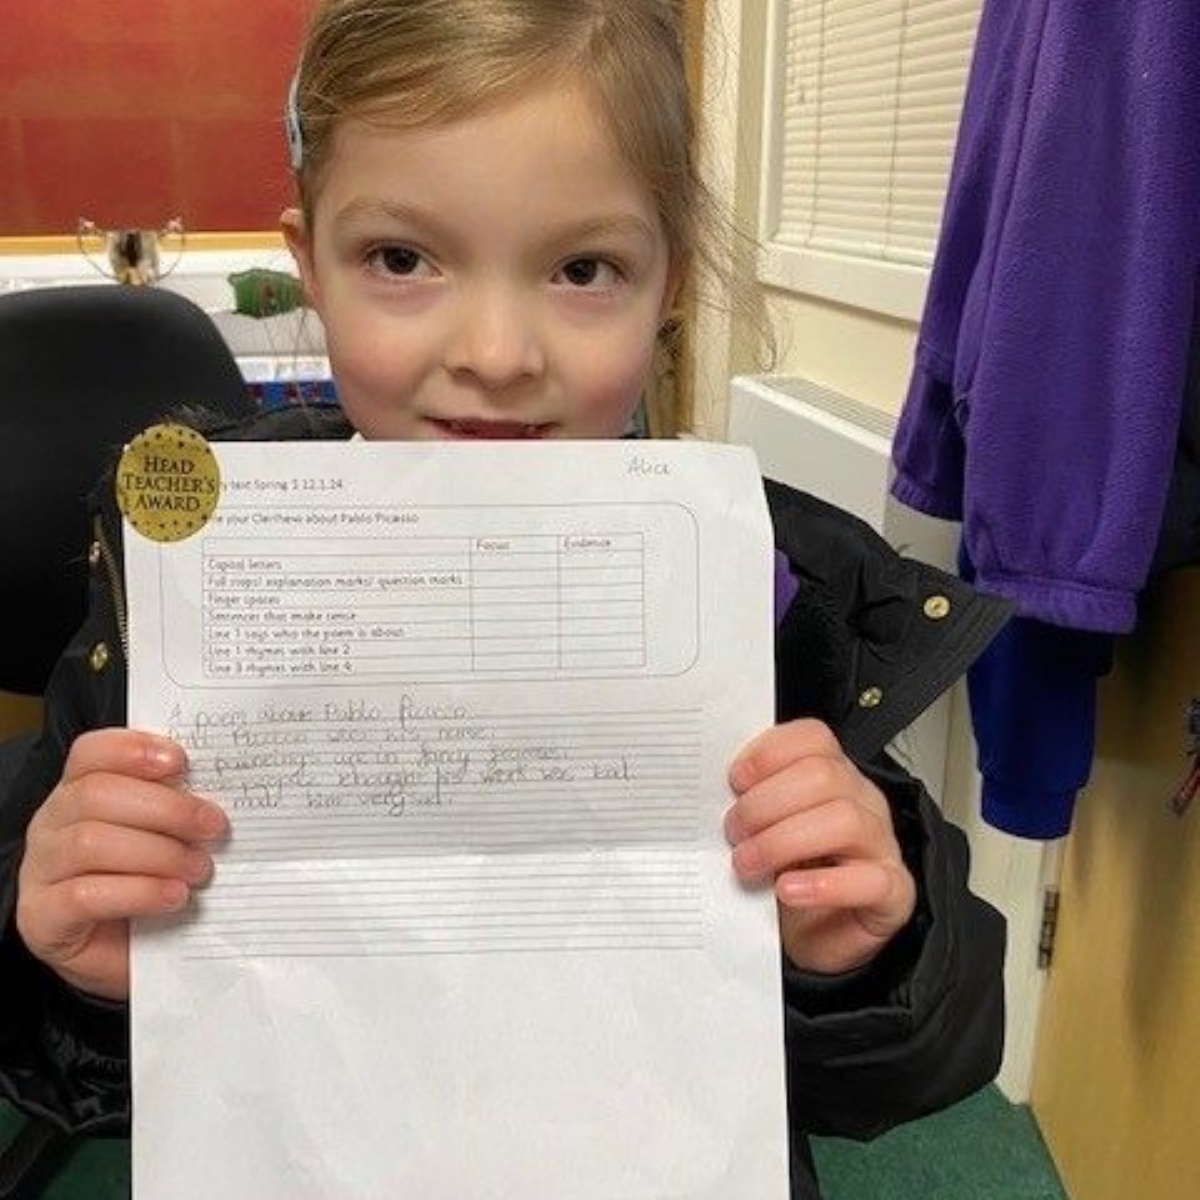 HEAD
TEACHER'S
AWARD
Alice
text Spring 1 12.1.24
your Clerihews about Pablo Picasso
Focus Evidence
Capital letters
Full stops/ explanation marks/ question marks
Finger spaces
Sentences that make sense
Line 1 says who the poem is about
Line 1 rhymes with line 2
Line 3 rhymes with line 4
A poem about Pablo Picasso
Picasso was his name.
paintings are in fancy
people thought his work was bad
made him very sad.